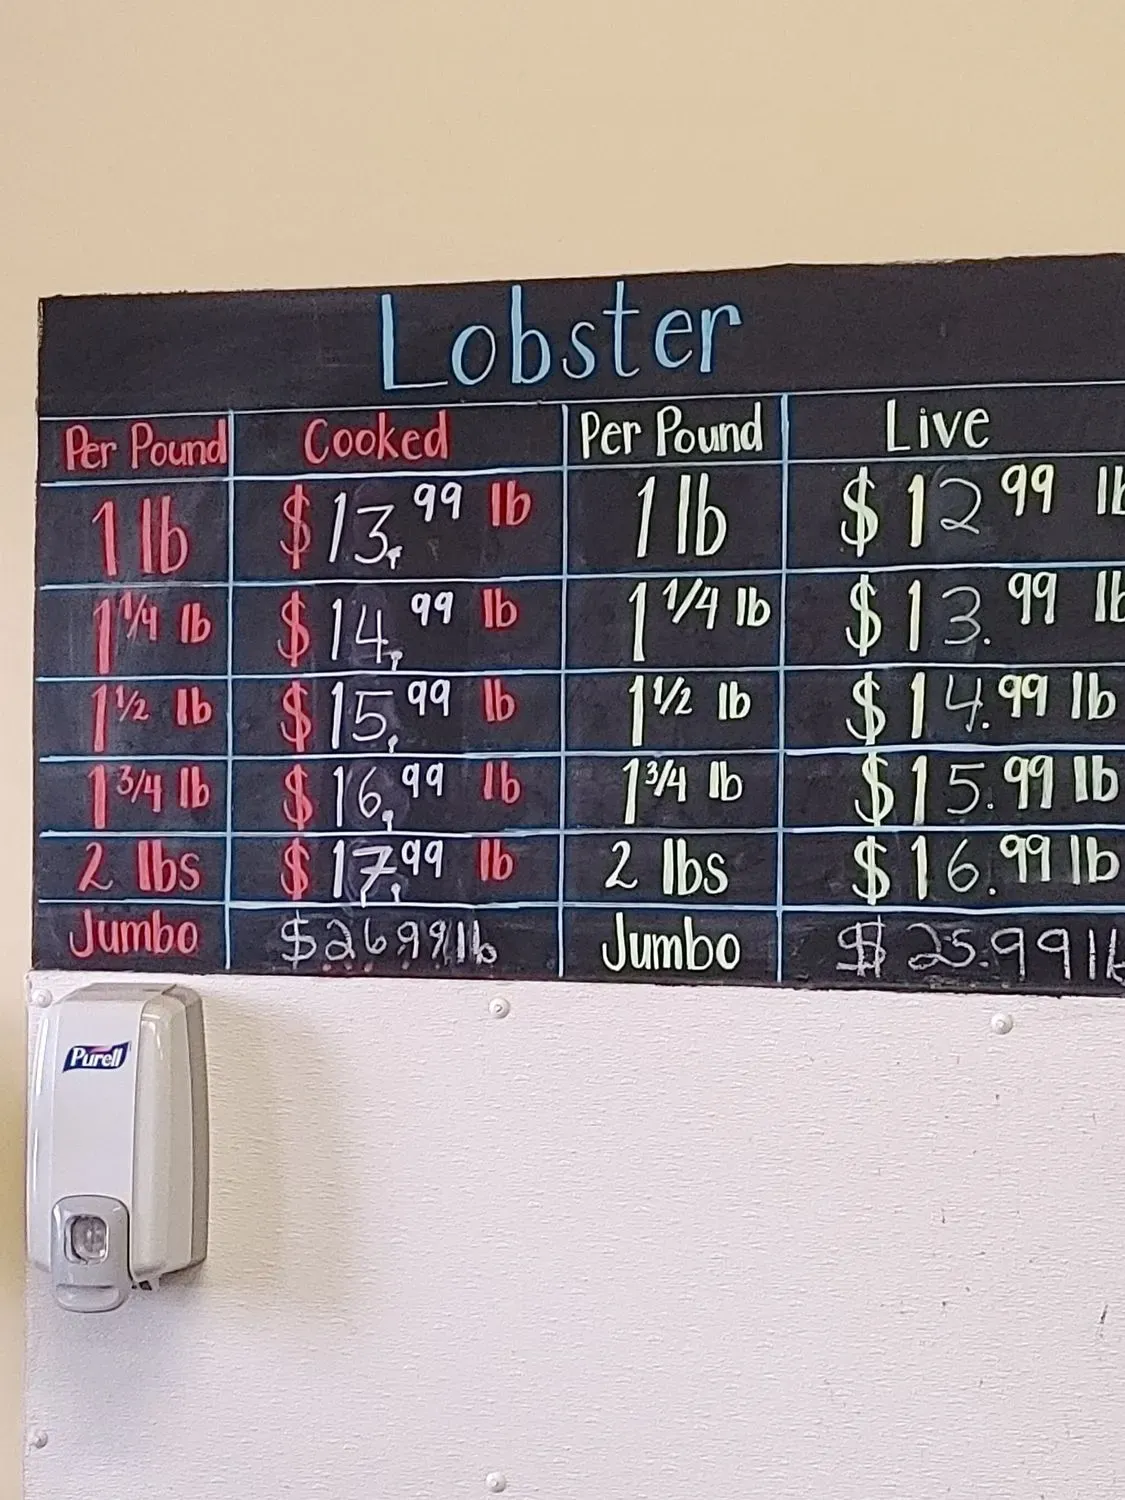 Lobster
Per Pound Cooked Per Pound Live
1 lb $13.99 lb 1 lb $12 99 lb
1 1/4 lb $14.99 lb 1 1/4 lb $13.99 lb
1 1/2 lb $15.99 lb 1 1/2 lb $14.99 lb
1 3/4 lb $16.99 lb 1 3/4 lb $15.99 lb
2 lbs $17.99 lb 2 lbs $16.99 lb
Jumbo $26.99 lb Jumbo $25.99 lb
Purell